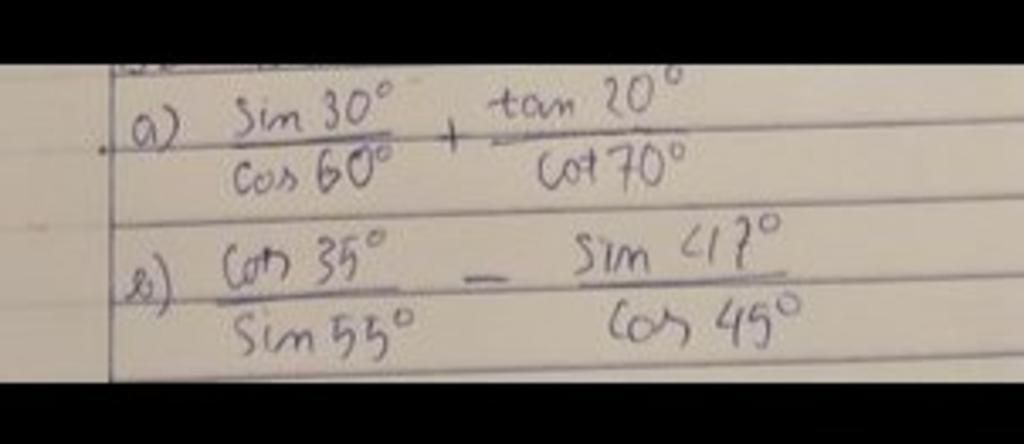 a) sin 30° / cos 60° + tan 20° / cot 70°
b) cos 35° / sin 55° - sin 47° / cos 45°